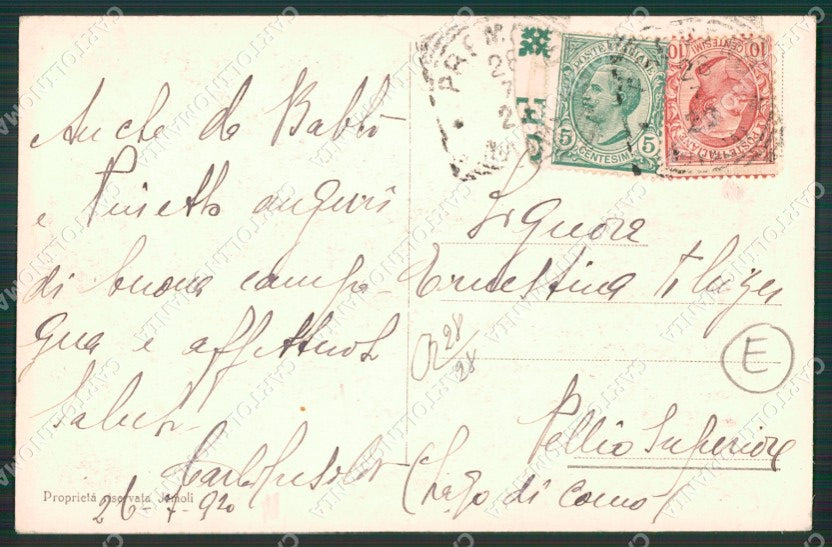 Anche da Babbo
e auguri
di buona campa-
gna e affettuosi
saluti
Proprietà riservata Jemoli
26-7-920
POSTE ITALIANE
5 5
CENTESIMI
10 10
CENTESIMI
POSTE ITALIANE
Signora
Ernestina
28/28
E
Pellio Superiore
(Lago di Como)
CARTOLINOMANIA